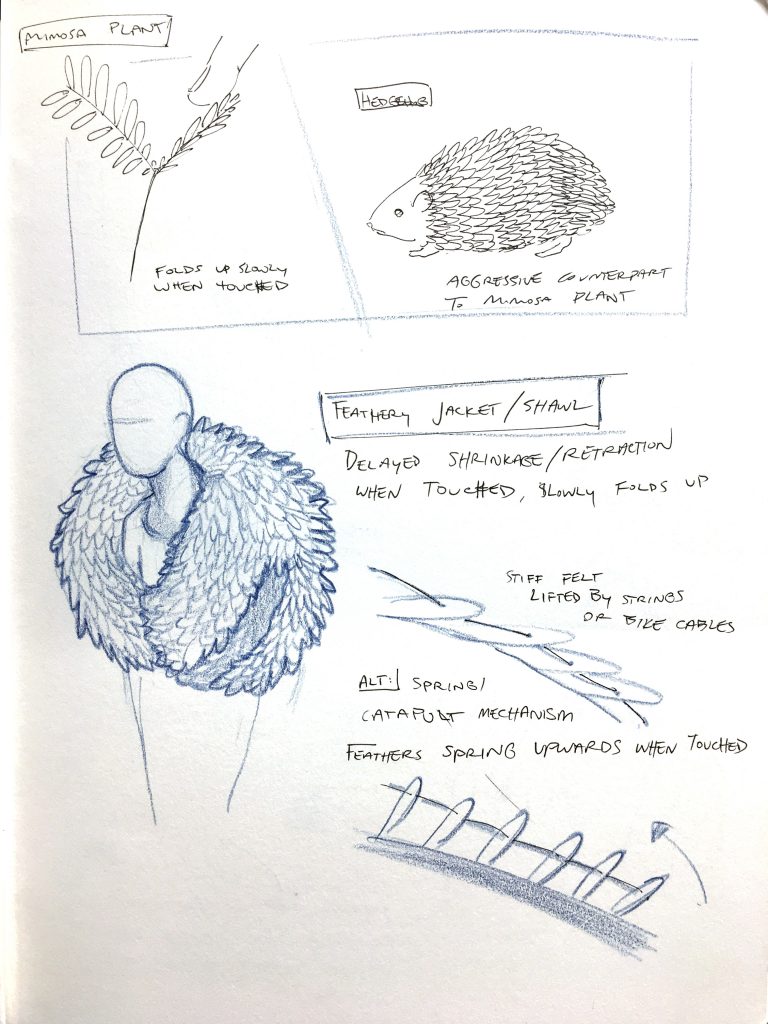 MIMOSA PLANT
FOLDS UP SLOWLY
WHEN TOUCHED
AGGRESSIVE COUNTERPART
TO MIMOSA PLANT
FEATHERY JACKET/SHAWL
DELAYED SHRINKAGE/RETRACTION
WHEN TOUCHED, SLOWLY FOLDS UP
STIFF FELT
LIFTED BY STRINGS
OR BIKE CABLES
ALT: SPRING/
CATAPULT MECHANISM
FEATHERS SPRING UPWARDS WHEN TOUCHED